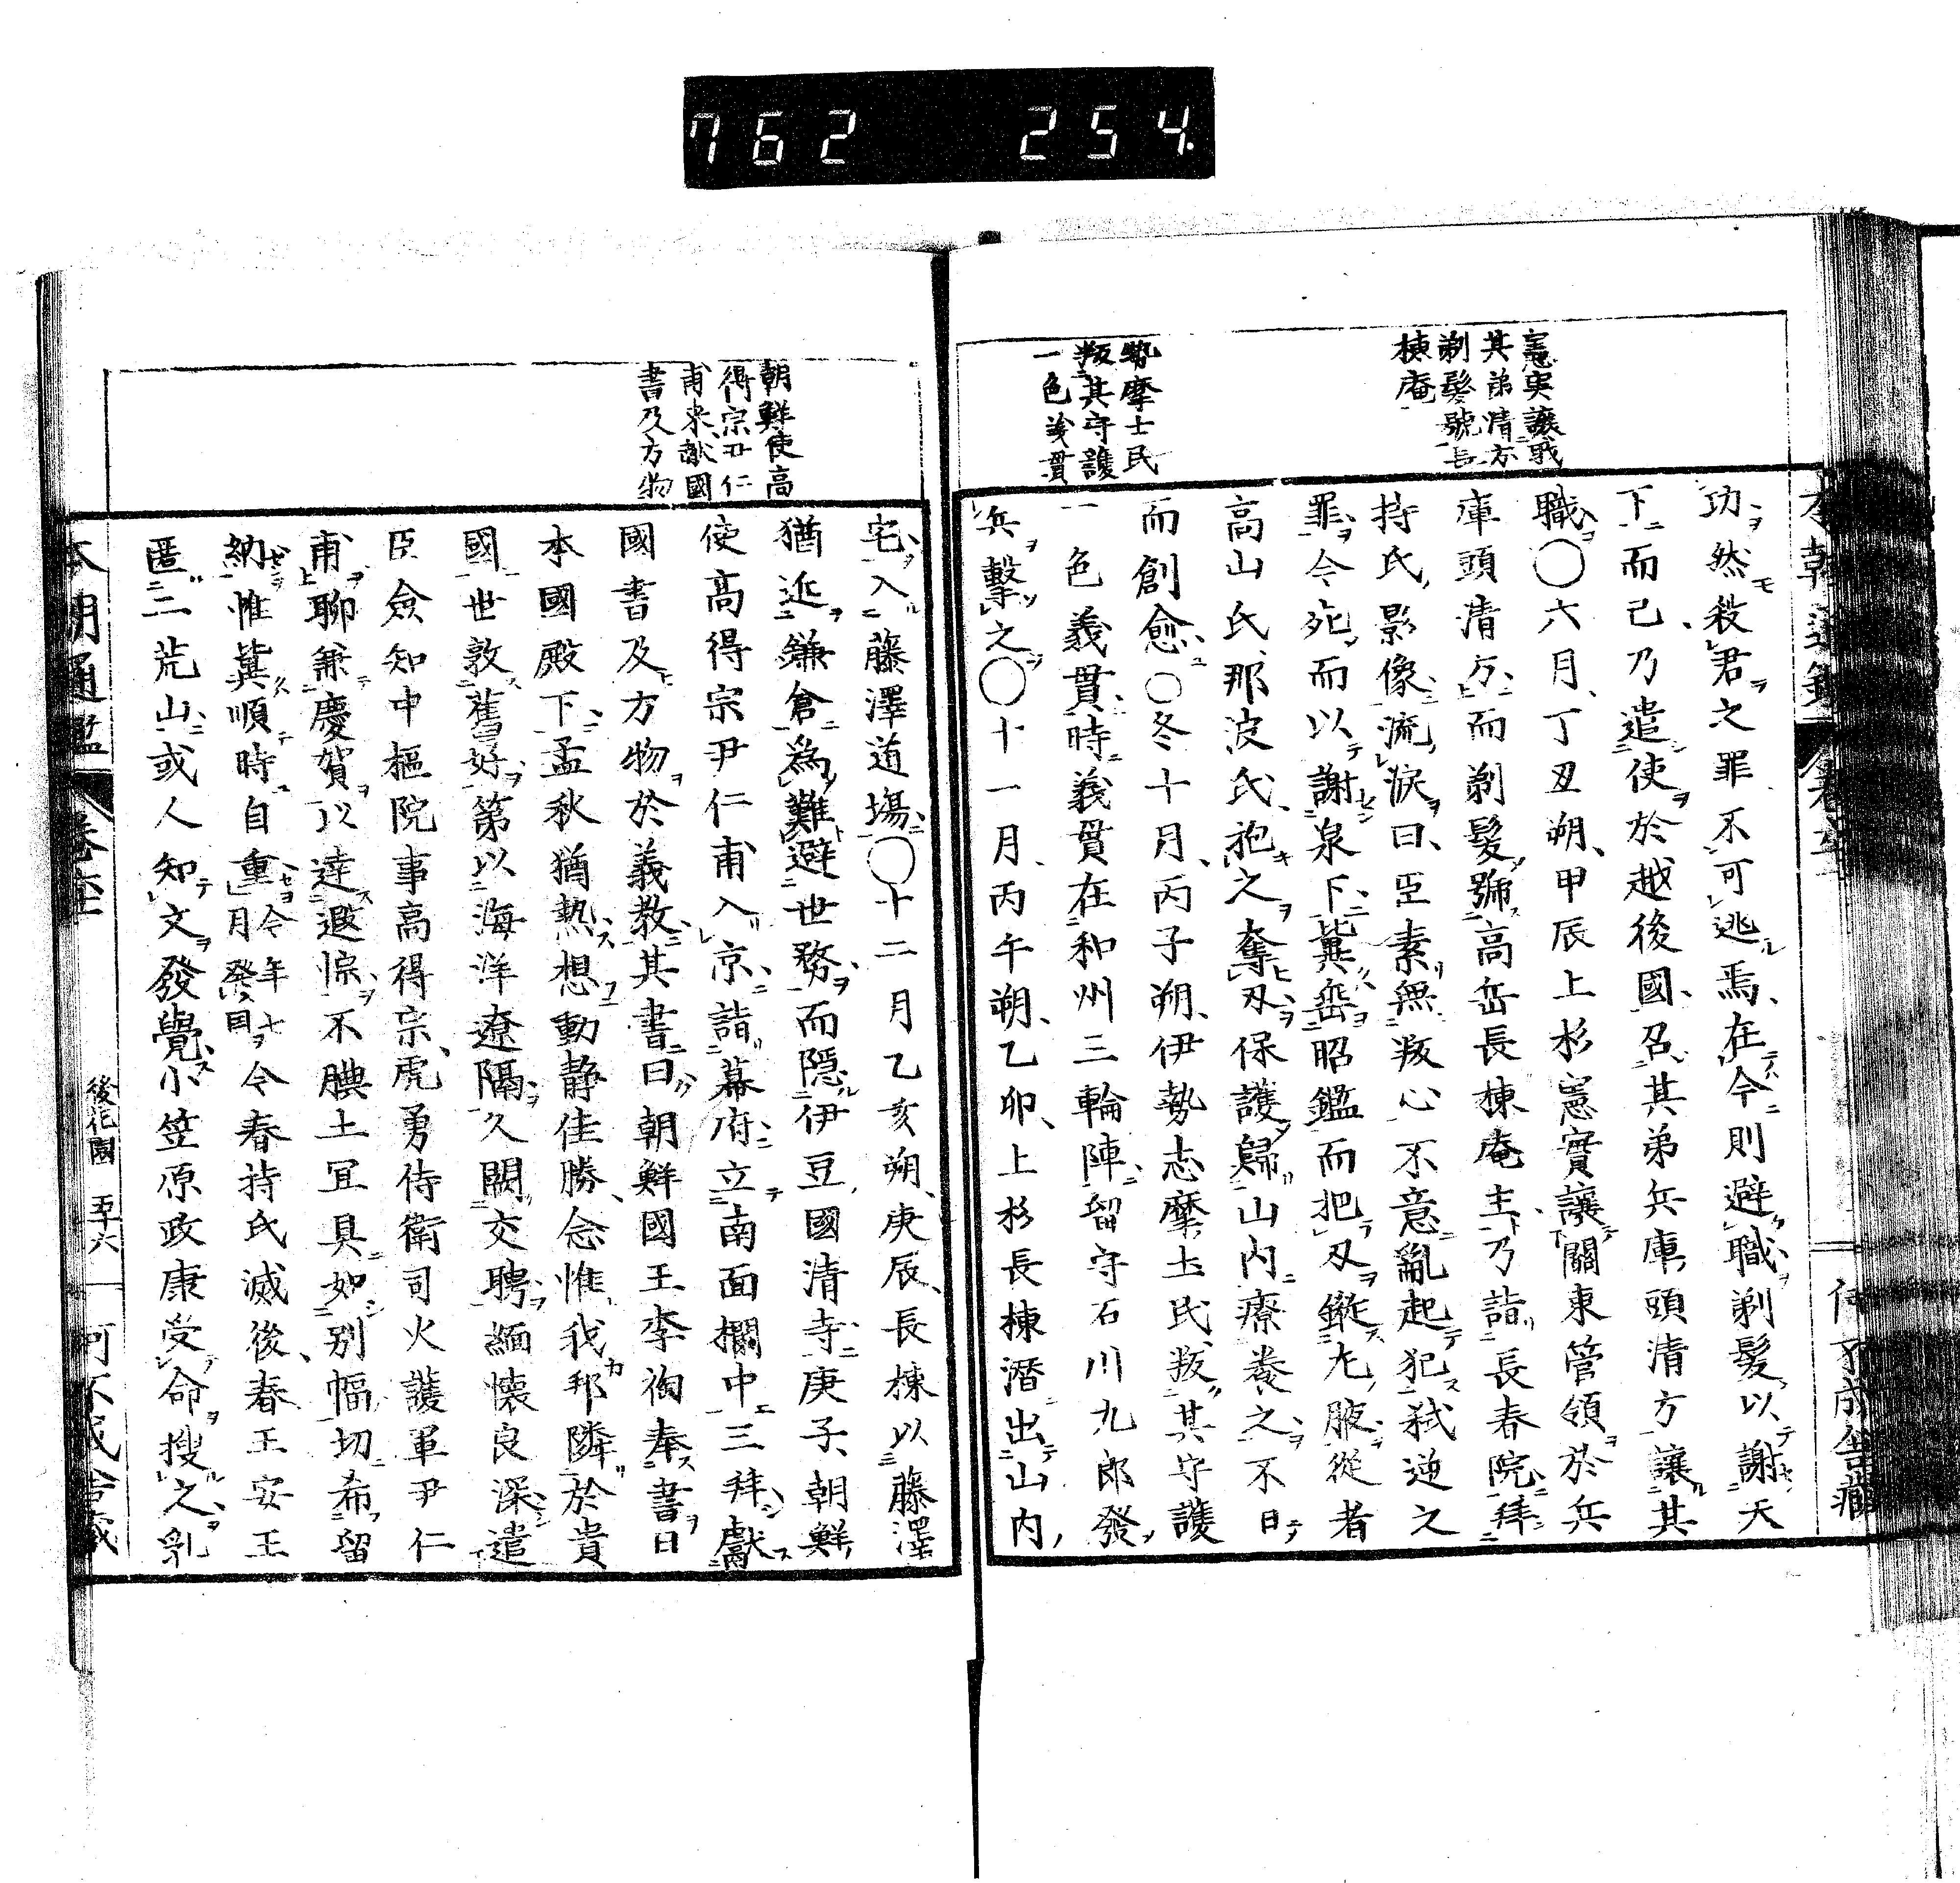 762 254
憲実譲職
其弟清方
剃髪號長
棟庵
勢摩士民
叛其守護
一色義貫
功然殺君之罪不可逃焉在今則避職剃髮以謝天
下而已乃遣使於越後國召其弟兵庫頭清方讓其
職○六月丁丑朔甲辰上杉憲實讓關東管領於兵
庫頭清方而剃髮號高岳長棟庵主乃詣長春院拜
持氏影像流淚曰臣素無叛心不意亂起犯弑逆之
罪令死而以謝泉下冀垂昭鑑而把刄鏦左腋從者
高山氏那波氏抱之奪刄保護歸山內療養之不日
而創愈○冬十月丙子朔伊勢志摩土民叛其守護
一色義貫時義貫在和州三輪陣留守石川九郎發
兵擊之○十一月丙午朔乙卯上杉長棟潛出山内
朝鮮使高
得宗尹仁
甫来献國
書及方物
宅入藤澤道場○十二月乙亥朔庚辰長棟以藤澤
猶近鎌倉為難避世務而隱伊豆國清寺庚子朝鮮
使高得宗尹仁甫入京詣幕府立南面欄中三拜獻
國書及方物於義教其書曰朝鮮國王李祹奉書日
本國殿下孟秋猶熱想動靜佳勝念惟我邦隣於貴
國世敦舊好第以海洋遼隔久闕交聘緬懷良深遣
臣僉知中樞院事高得宗虎勇侍衛司火護軍尹仁
甫聊兼慶賀以達遐悰不腆土宜具如別幅切希留
納惟冀順時自重今年七月發目今春持氏滅後春王安王
匿二荒山或人知文發覺小笠原政康受命搜之乳
本朝通鑑 後花園 五十六